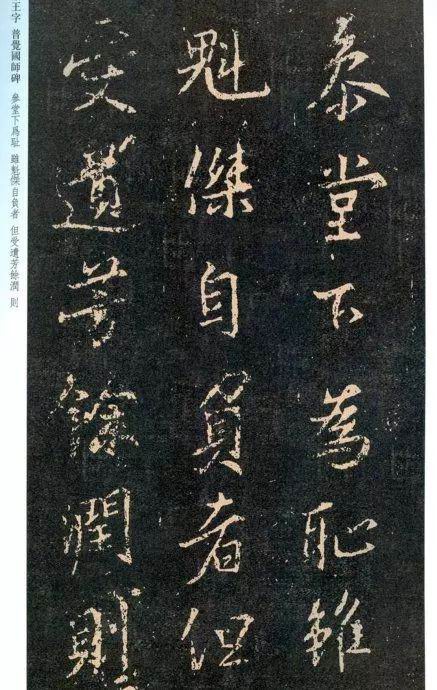 參堂下為恥雖
魁傑自負者但
受遺芳餘潤則
王字 普覺國師碑 參堂下爲耻 雖魁傑自負者 但受遺芳餘潤 則